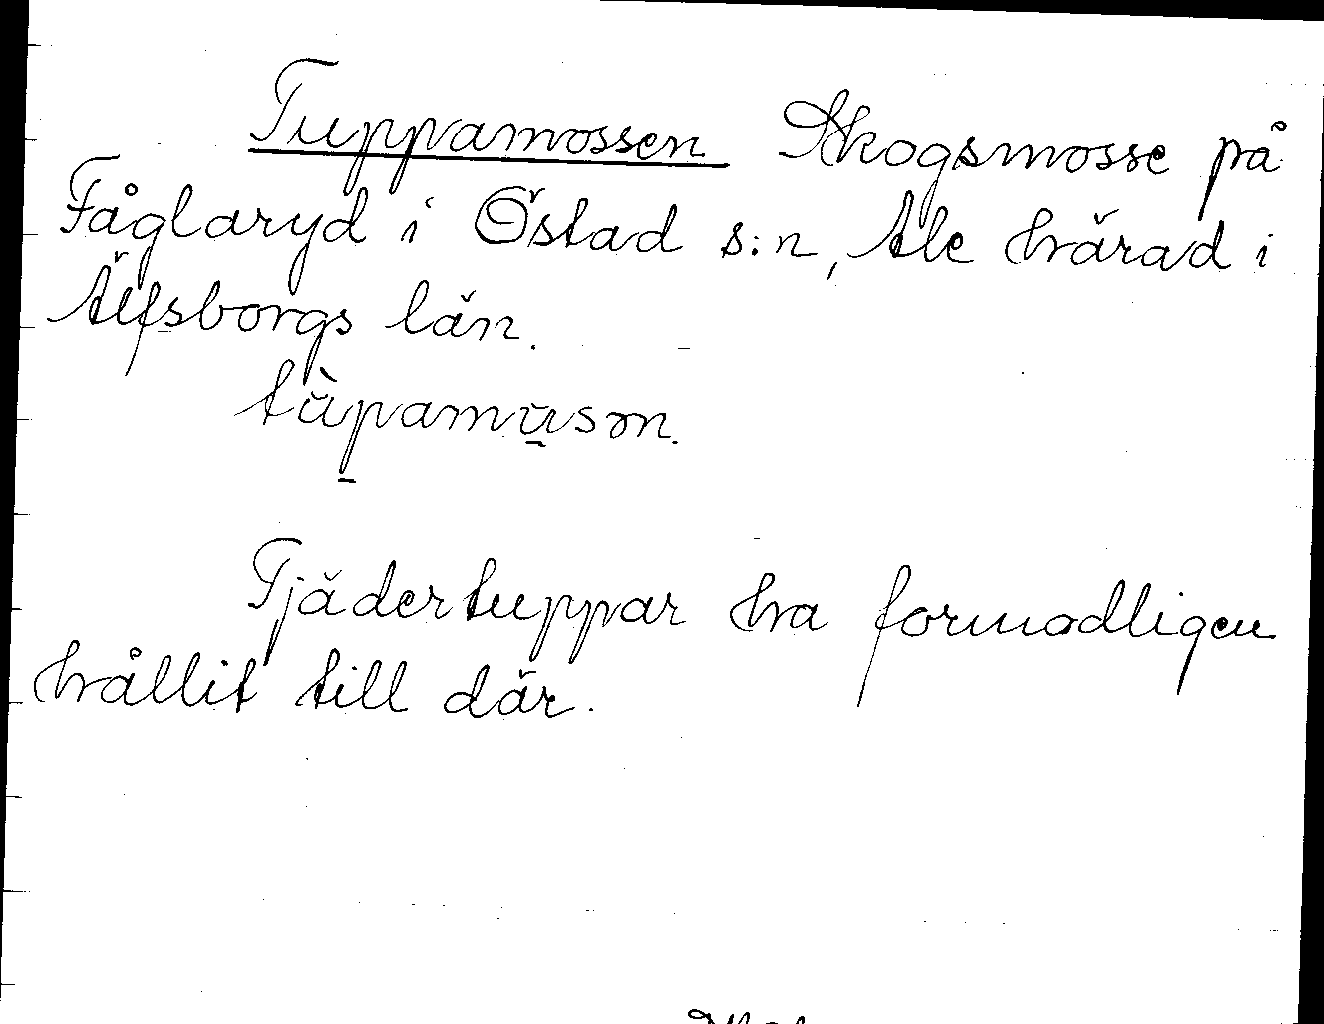 Tuppamossen Skogsmosse på
Fåglaryd i Östad s:n, Ale härad i
Älfsborgs län.
tùpamusən.
Tjädertuppar ha formodligen
hållit till där.